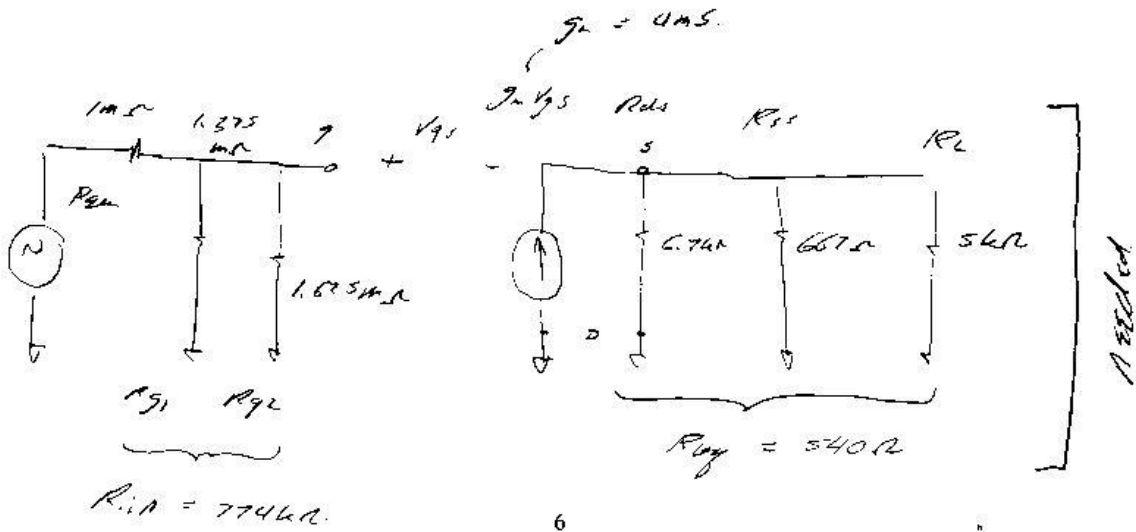 gm = 4mS.
1mΩ
1.375
mΩ
g
+ Vgs -
gmVgs
Rds
s
Rss
RL
Rgen
~
1.525mΩ
6.7kΩ
667Ω
5kΩ
D
Rg1 Rg2
Rin = 774kΩ.
= 540Ω
needed
6